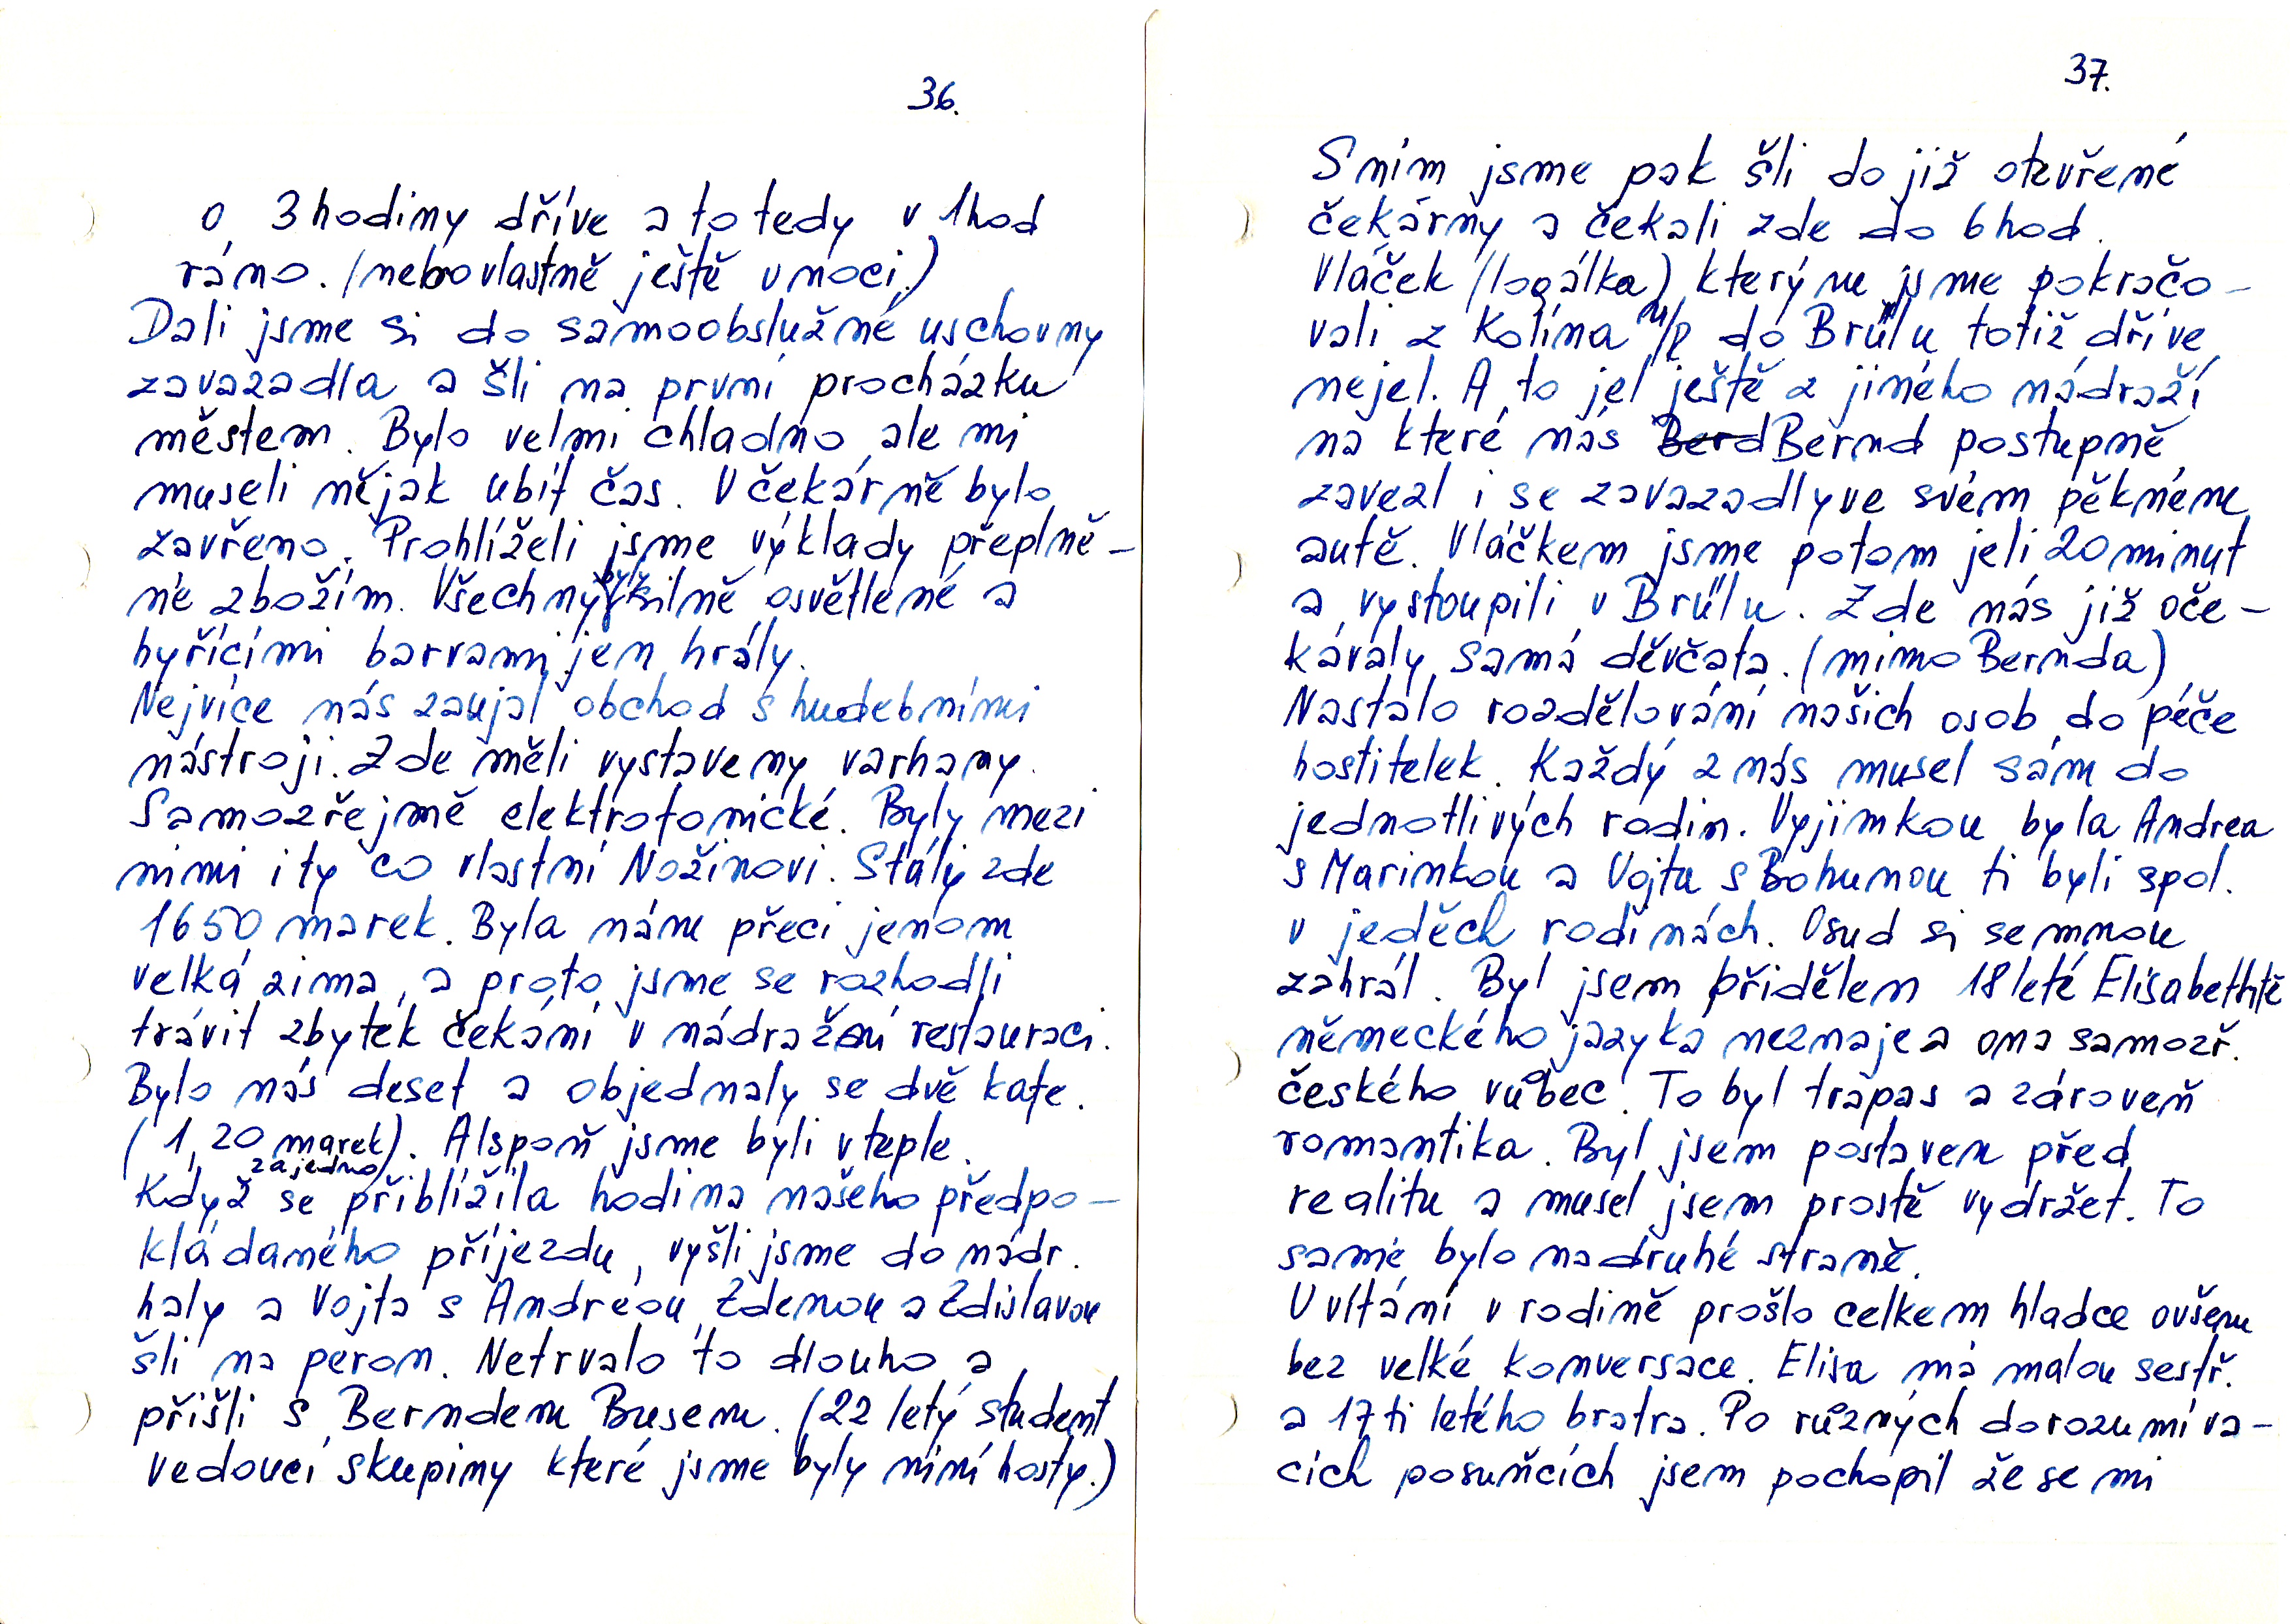 36.
o 3 hodiny dříve a to tedy v 1hod
ráno. (nebo vlastně ještě v noci.)
Dali jsme si do samoobslužné uschovny
zavazadla a šli na první procházku
městem. Bylo velmi chladno, ale mi
museli nějak ubít čas. V čekárně bylo
zavřeno. Prohlíželi jsme výklady přeplně-
né zbožím. Všechny byly silně osvětlené a
hyřícími barvami jen hrály.
Nejvíce nás zaujal obchod s hudebními
nástroji. Zde měli vystaveny varhany.
Samozřejmě elektrofonické. Byly mezi
nimi i ty co vlastní Nožinovi. Stály zde
1650 marek. Byla nám přeci jenom
velká zima, a proto jsme se rozhodli
trávit zbytek čekání v nádražní restauraci.
Bylo nás deset a objednaly se dvě kafe.
(1,20 marek). Alspoň jsme byli v teple.
za jedno
Když se přiblížila hodina našeho předpo-
kládaného příjezdu, vyšli jsme do nádr.
haly a Vojta s Andreou, Zdenou a Zdislavou
šli na peron. Netrvalo to dlouho a
přišli s Berndem Busem. (22 letý student
vedoucí skupiny které jsme byly niní hosty.)
37.
S ním jsme pak šli do již otevřené
čekárny a čekali zde do 6 hod.
Vláček (logálka) kterým jsme pokračo-
vali z Kolína n/R do Brülu totiž dříve
nejel. A to jel ještě z jiného nádraží
na které nás Berd Bernd postupně
zavezl i se zavazadly ve svém pěkném
autě. Vláčkem jsme potom jeli 20 minut
a vystoupili v Brülu. Zde nás již oče-
kávaly samá děvčata. (mimo Bernda)
Nastalo rozdělování našich osob do péče
hostitelek. Každý z nás musel sám do
jednotlivých rodin. Vyjimkou byla Andrea
s Marinkou a Vojta s Bohunou ti byli spol.
v jeděch rodinách. Osud si semnou
zahrál. Byl jsem přidělen 18 leté Elisabethtě
německého jazyka neznaje a ona samozř.
českého vůbec. To byl trapas a zároveň
romantika. Byl jsem postaven před
realitu a musel jsem prostě vydržet. To
samé bylo na druhé straně.
Uvítání v rodině prošlo celkem hladce ovšem
bez velké konversace. Elisa má malou sestř.
a 17 ti letého bratra. Po různých dorozumíva-
cích posuňcích jsem pochopil že se mi